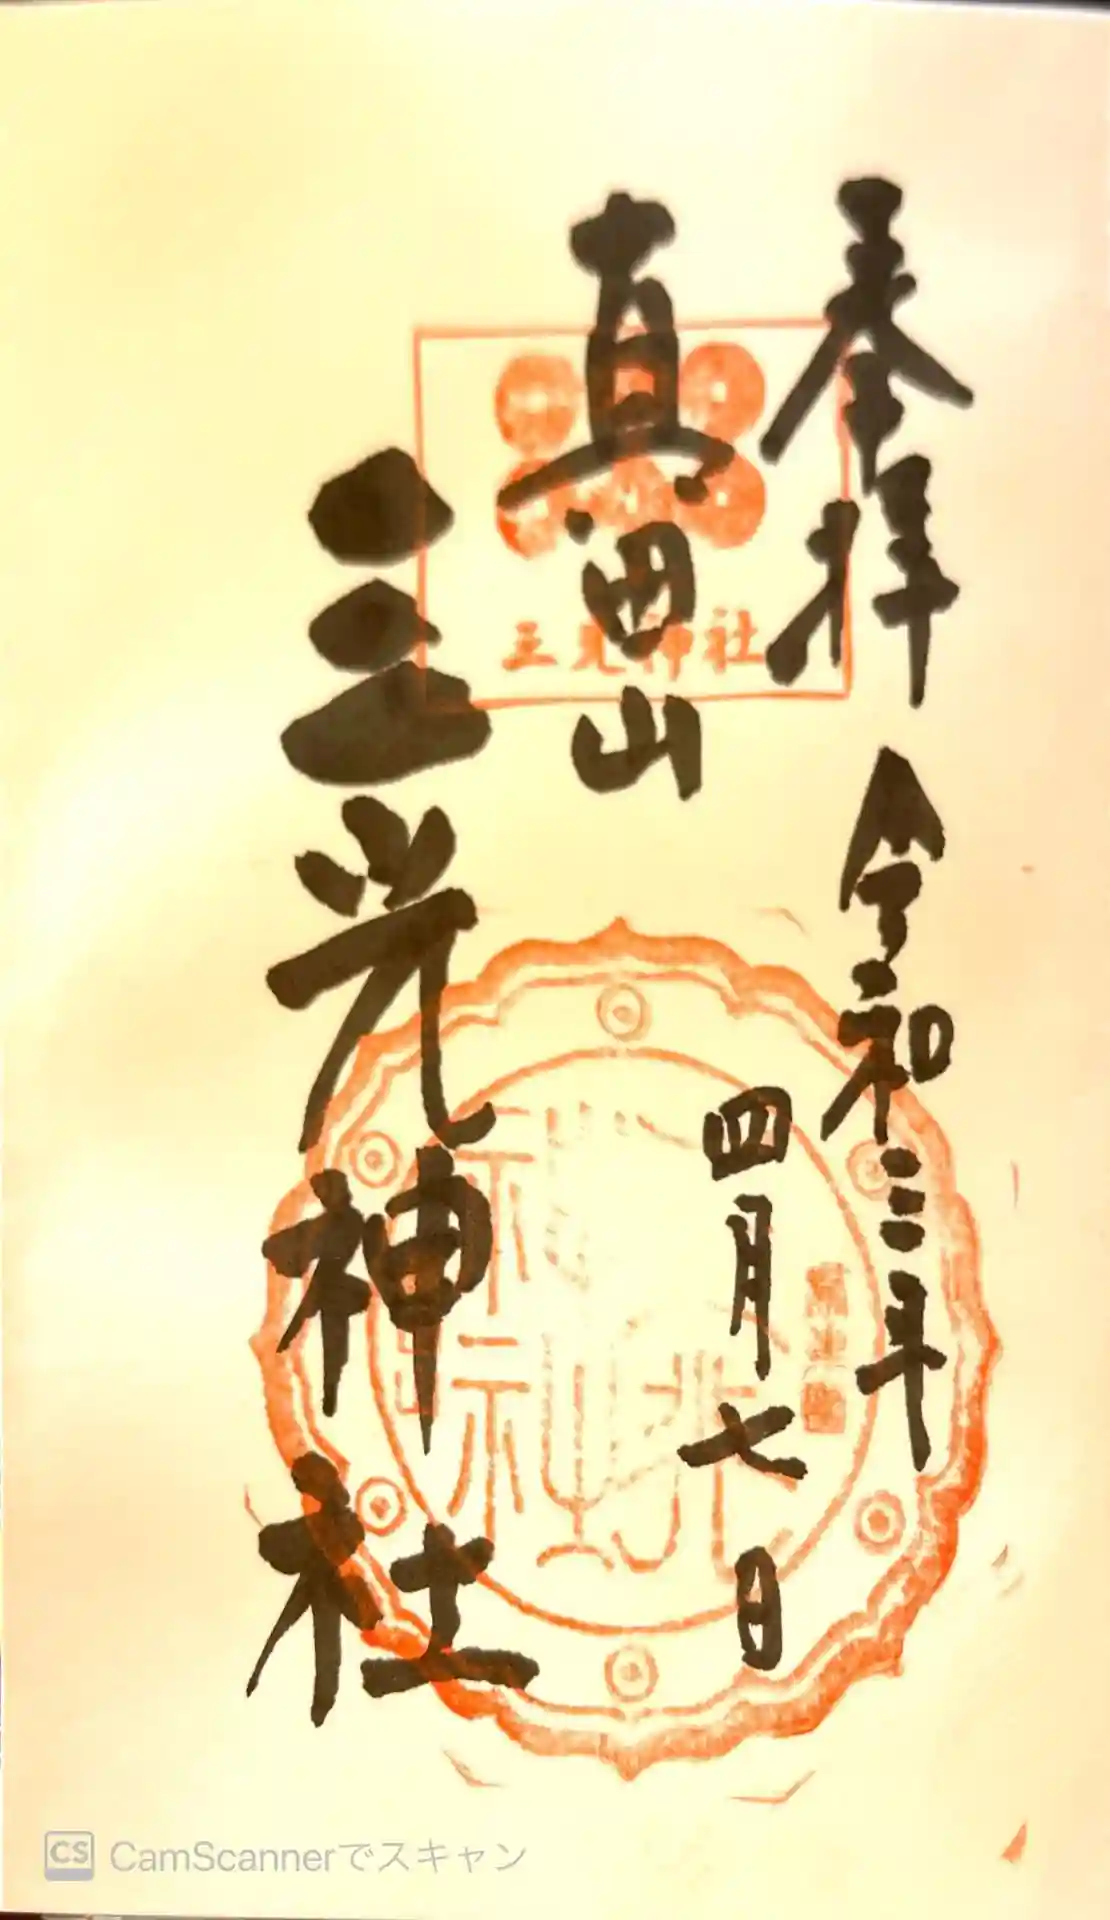 奉拝
令和三年
四月七日
真田山
三光神社
三光神社
CS CamScannerでスキャン